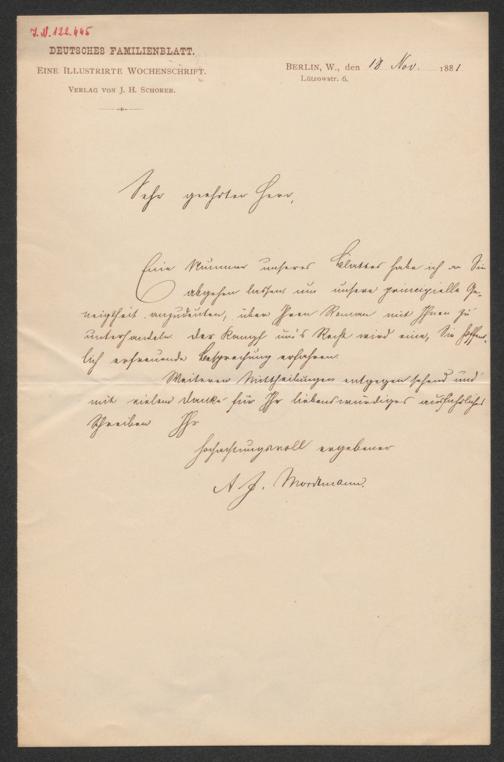 J.N. 122.445
DEUTSCHES FAMILIENBLATT.
EINE ILLUSTRIRTE WOCHENSCHRIFT.
VERLAG VON J. H. SCHORER.
BERLIN, W., den 18 Nov. 1881
Lützowstr. 6.
Sehr geehrter Herr,
Eine Nummer unseres Blattes habe ich an Sie
abgehen lassen um unsere principielle Ge-
neigtheit anzudeuten, über Ihren Roman mit Ihnen zu
unterhandeln. Der Kampf um's Recht wird eine, Sie hoffent-
lich erfreuende Besprechung erfahren.
Weiteren Mittheilungen entgegen sehend und
mit vielem Danke für Ihr liebenswürdiges ausführliches
Schreiben Ihr
hochachtungsvoll ergebener
A J. Mordtmann.